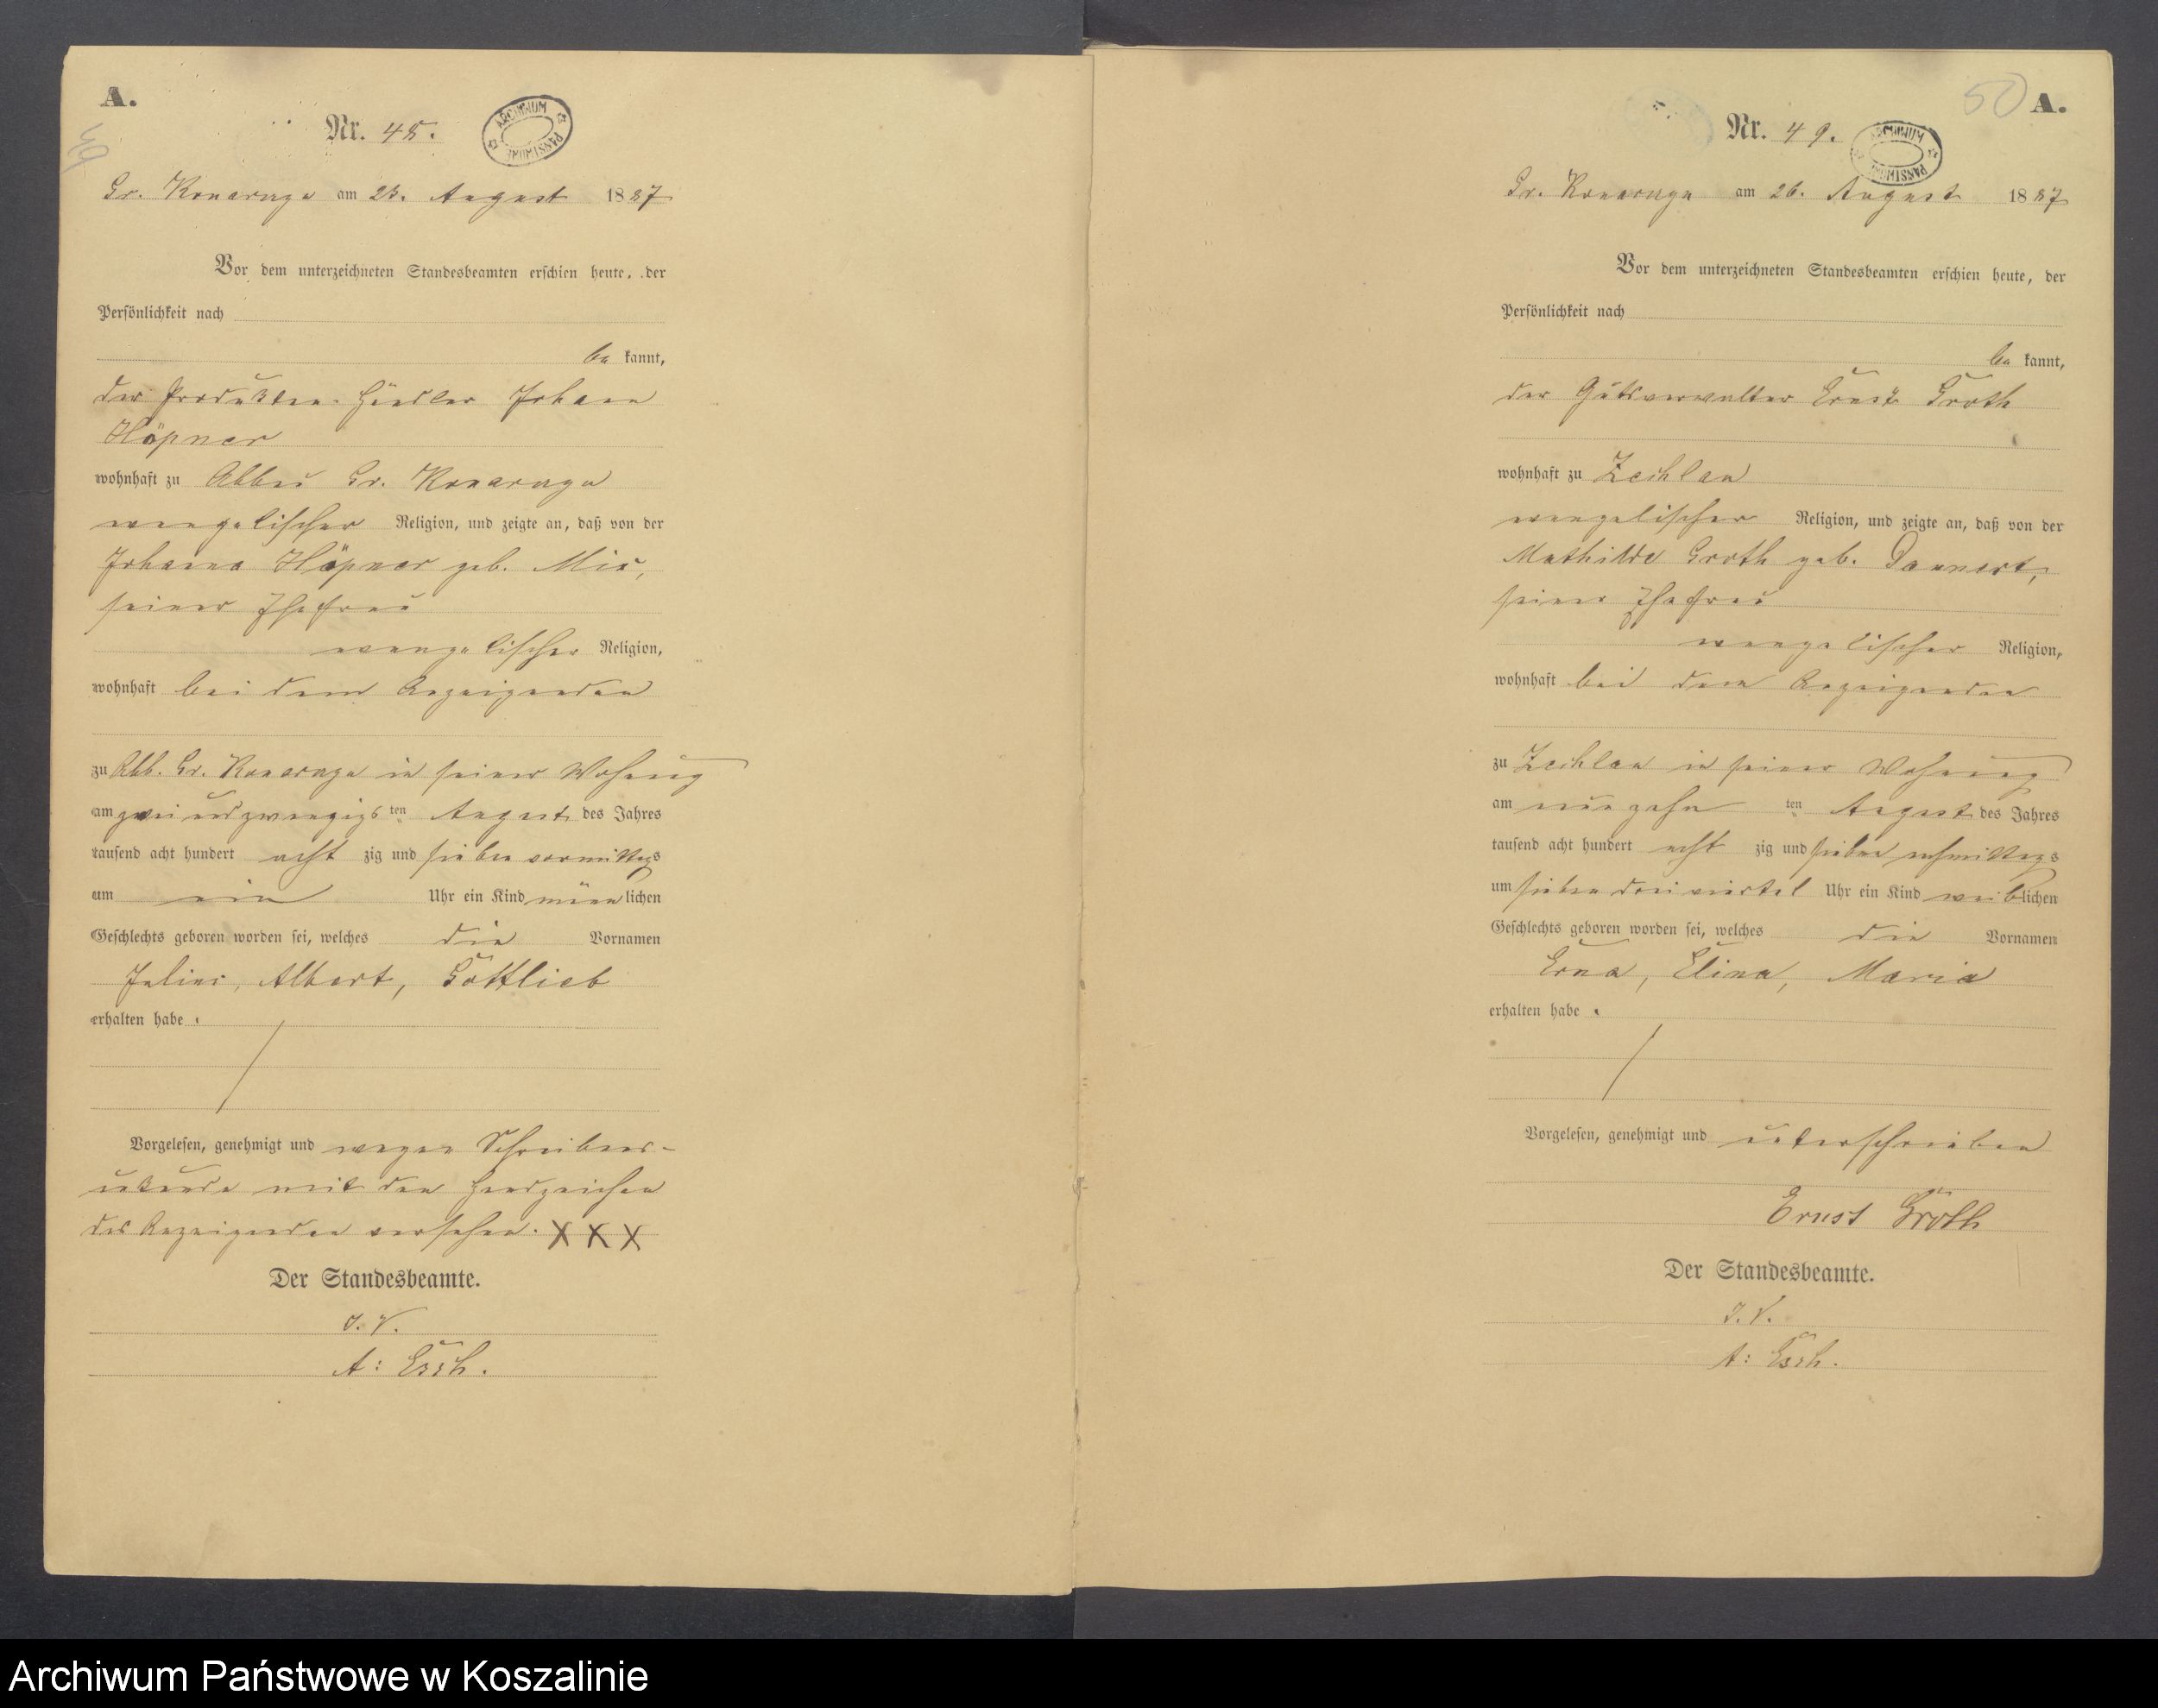 A.
Nr. 48.
ARCHIWUM PAŃSTWOWE
Gr. Konarczyn am 23. August 1887
Vor dem unterzeichneten Standesbeamten erschien heute, der
Persönlichkeit nach
be kannt,
der Produkten-Händler Johann
Höpner
wohnhaft zu Abbau Gr. Konarczyn
evangelischer Religion, und zeigte an, daß von der
Johanna Höpner geb.
seiner Ehefrau
evangelischer Religion,
wohnhaft bei dem Anzeigenden
zu Abb. Gr. Konarczyn in seiner Wohnung
am zwei und zwanzigs ten August des Jahres
tausend acht hundert acht zig und sieben vormittags
um ein Uhr ein Kind männ lichen
Geschlechts geboren worden sei, welches die Vornamen
Julius, Albert, Gottlieb
erhalten habe.
Vorgelesen, genehmigt und wegen Schreibens-
unkunde mit den Handzeichen
des Anzeigenden versehen. X X X
Der Standesbeamte.
I. V.
A: Esch.
50 A.
Nr. 49.
ARCHIWUM PAŃSTWOWE
Gr. Konarczyn am 26. August 1887
Vor dem unterzeichneten Standesbeamten erschien heute, der
Persönlichkeit nach
be kannt,
der Gutsverwalter Ernst Groth
wohnhaft zu Zechlau
evangelischer Religion, und zeigte an, daß von der
Mathilde Groth geb. Dannert,
seiner Ehefrau
evangelischer Religion,
wohnhaft bei dem Anzeigenden
zu Zechlau in seiner Wohnung
am neunzehn ten August des Jahres
tausend acht hundert acht zig und sieben nachmittags
um sieben dreiviertel Uhr ein Kind weib lichen
Geschlechts geboren worden sei, welches die Vornamen
Erna, Elina, Maria
erhalten habe.
Vorgelesen, genehmigt und unterschrieben
Ernst Groth
Der Standesbeamte.
I. V.
A: Esch.
Archiwum Państwowe w Koszalinie